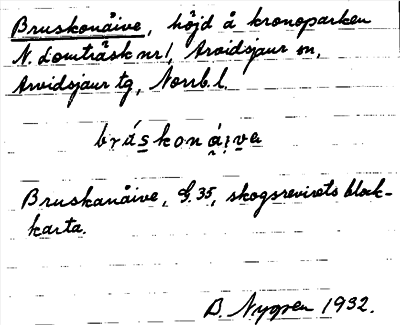 Bruskonåive, höjd å kronoparken
N. Lomträsk nr 1, Arvidsjaur sn,
Arvidsjaur tg, Norrb. l.
bráskonái̯ve
Bruskanåive, G. 35, skogsrevirets block-
karta.
B. Nygren 1932.